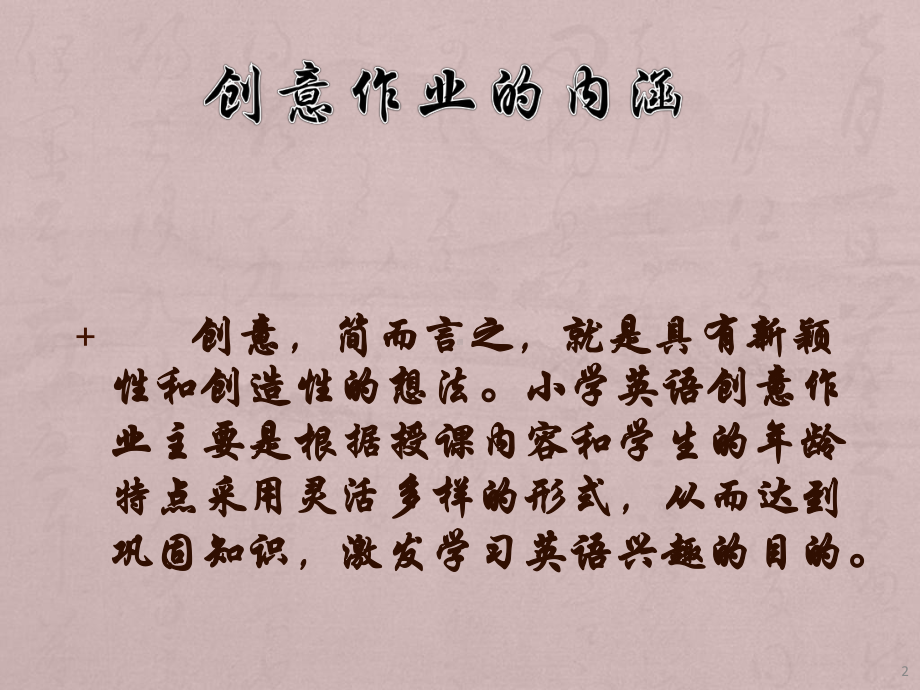 创意作业的内涵
+ 创意，简而言之，就是具有新颖
性和创造性的想法。小学英语创意作
业主要是根据授课内容和学生的年龄
特点采用灵活多样的形式，从而达到
巩固知识，激发学习英语兴趣的目的。
2